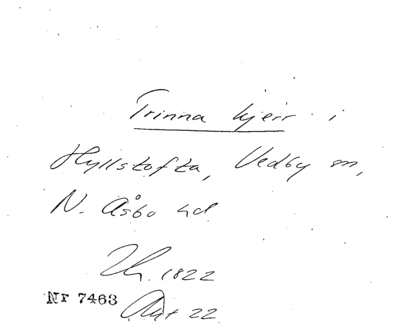 Trinna kjerr i
Hyllstofta, Vedby sn,
N. Åsbo hd
Th. 1822
Nr 7463 Akt 22